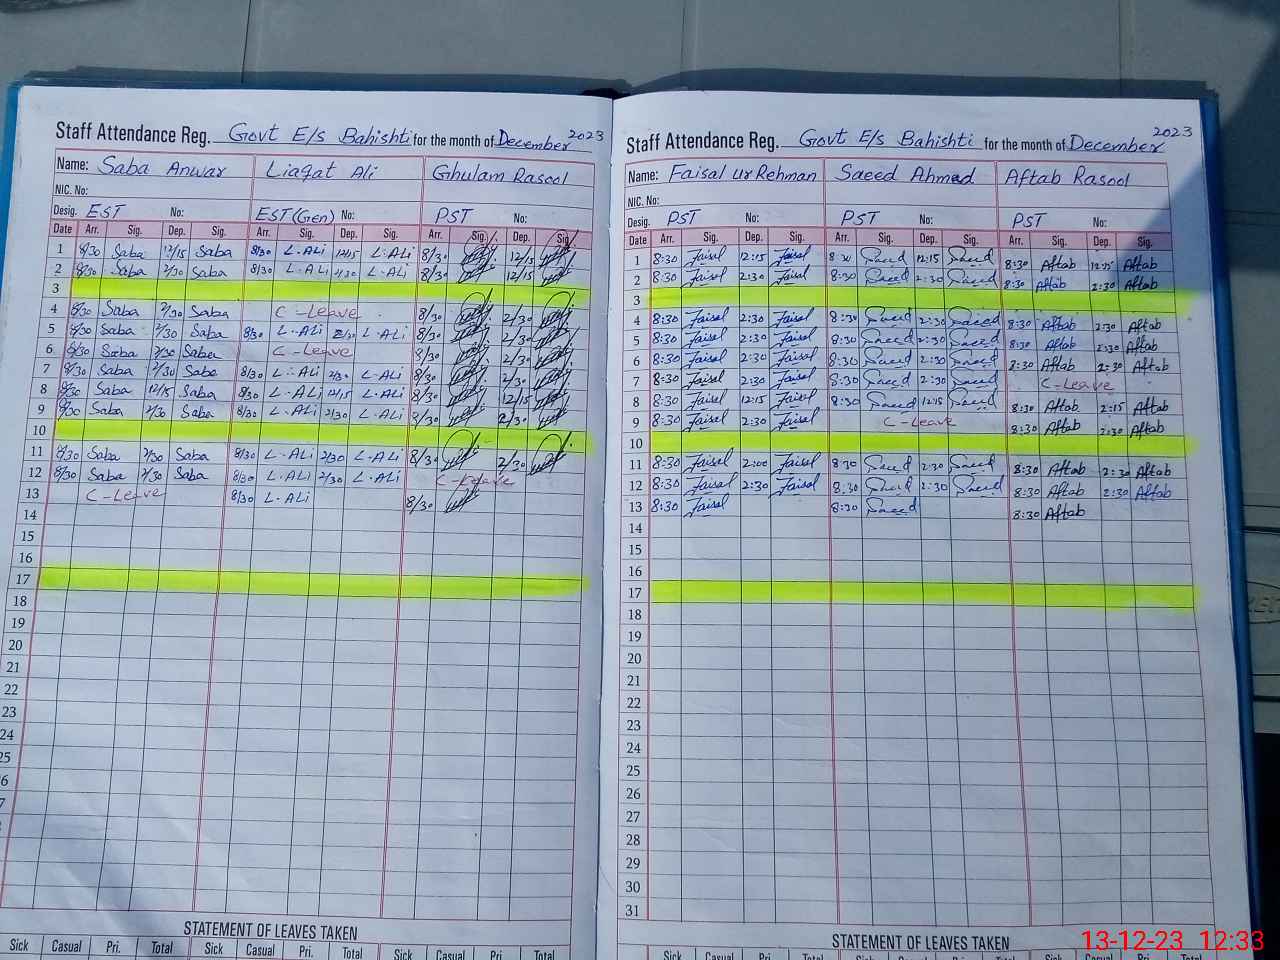 Staff Attendance Reg. Govt E/s Bahishti for the month of December 2023
Name: Saba Anwar Liaqat Ali Ghulam Rasool
NIC. No:
Desig. EST No: EST (Gen) No: PST No:
Date Arr. Sig. Dep. Sig. Arr. Sig. Dep. Sig. Arr. Sig. Dep. Sig.
1 8/30 Saba 12/15 Saba 8/30 L-ALi 12/15 L-ALi 8/30 12/15
2 8/30 Saba 2/30 Saba 8/30 L-ALi 2/30 L-ALi 8/30 12/15
3
4 8/30 Saba 2/30 Saba C-Leave 8/30 2/30
5 8/30 Saba 2/30 Saba 8/30 L-ALi 2/30 L-ALi 8/30 2/30
6 8/30 Saba 2/30 Saba C-Leave 8/30 2/30
7 8/30 Saba 2/30 Saba 8/30 L-ALi 2/30 L-ALi 8/30 2/30
8 8/30 Saba 12/15 Saba 8/30 L-ALi 12/15 L-ALi 8/30 12/15
9 8/30 Saba 2/30 Saba 8/30 L-ALi 2/30 L-ALi 8/30 2/30
10
11 8/30 Saba 2/30 Saba 8/30 L-ALi 2/30 L-ALi 8/30 2/30
12 8/30 Saba 2/30 Saba 8/30 L-ALi 2/30 L-ALi C-Leave
13 C-Leave 8/30 L-ALi 8/30
14
15
16
17
18
19
20
21
22
23
24
25
STATEMENT OF LEAVES TAKEN
Sick Casual Pri. Total Sick Casual Pri. Total Sick Casual Pri. Total
Staff Attendance Reg. Govt E/s Bahishti for the month of December 2023
Name: Faisal ur Rehman Saeed Ahmad Aftab Rasool
NIC. No:
Desig. PST No: PST No: PST No:
Date Arr. Sig. Dep. Sig. Arr. Sig. Dep. Sig. Arr. Sig. Dep. Sig.
1 8:30 Faisal 12:15 Faisal 8:30 Saeed 12:15 Saeed 8:30 Aftab 12:15 Aftab
2 8:30 Faisal 2:30 Faisal 8:30 Saeed 2:30 Saeed 8:30 Aftab 2:30 Aftab
3
4 8:30 Faisal 2:30 Faisal 8:30 Saeed 2:30 Saeed 8:30 Aftab 2:30 Aftab
5 8:30 Faisal 2:30 Faisal 8:30 Saeed 2:30 Saeed 8:30 Aftab 2:30 Aftab
6 8:30 Faisal 2:30 Faisal 8:30 Saeed 2:30 Saeed Aftab 2:30 Aftab
7 8:30 Faisal 2:30 Faisal 8:30 Saeed 2:30 Saeed C-Leave
8 8:30 Faisal 12:15 Faisal 8:30 Saeed 12:15 Saeed 8:30 Aftab 2:15 Aftab
9 8:30 Faisal 2:30 Faisal C-Leave 8:30 Aftab 2:30 Aftab
10
11 8:30 Faisal 2:00 Faisal 8:30 Saeed 2:30 Saeed 8:30 Aftab 2:30 Aftab
12 8:30 Faisal 2:30 Faisal 8:30 Saeed 2:30 Saeed 8:30 Aftab 2:30 Aftab
13 8:30 Faisal 8:30 Saeed 8:30 Aftab
14
15
16
17
18
19
20
21
22
23
24
25
26
27
28
29
30
31
STATEMENT OF LEAVES TAKEN
Sick Casual Pri. Total Sick Casual Pri. Total Sick
13-12-23 12:33